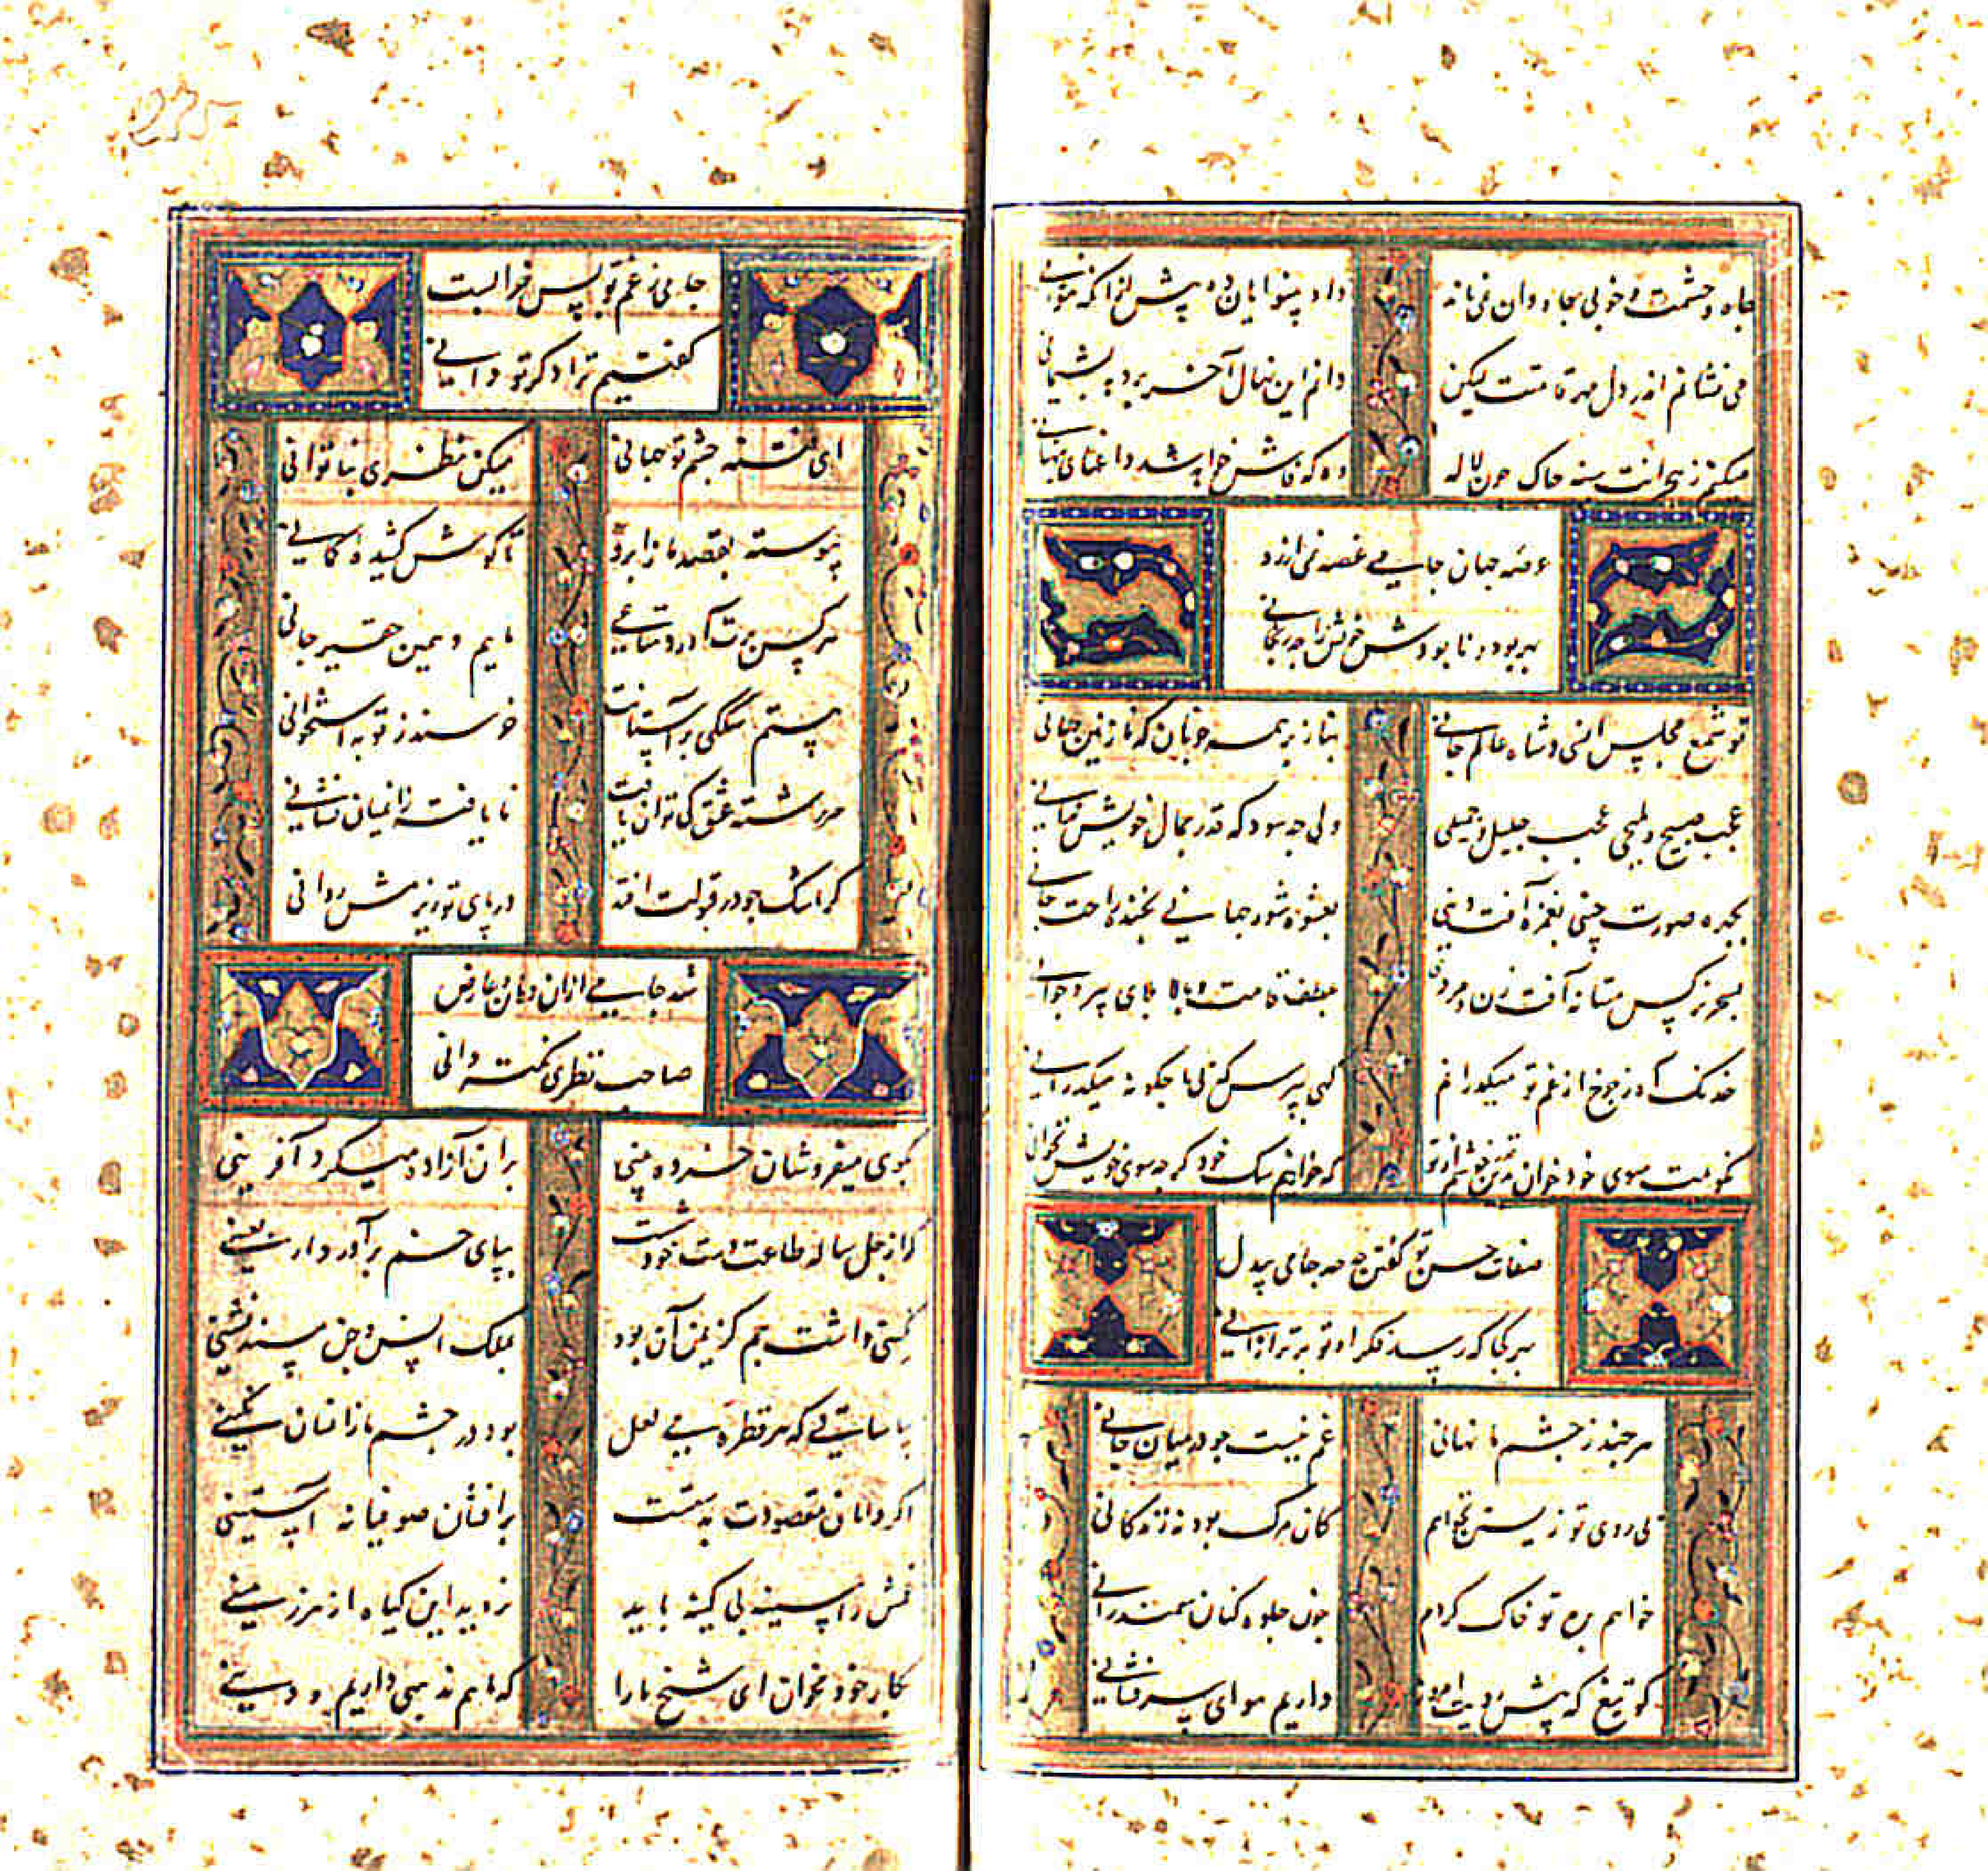 جاه و حشمت و خوبی جاودان نمی‌ماند
داد بینوایان ده پیش ازان که نتوانی
می نشانم اندر دل مهر قامتت لیکن
دانم این نهال آخر بر دهد پشیمانی
میکنم ز هجرانت سینه چاک چون لاله
وه که فاش خواهد شد داغهای پنهانی
عرصه جهان جامی غصه نمی ارزد
بهر بود و نابودش خویش را چه رنجانی
تو شمع مجلس انسی و شاه عالم جانی
بناز بر همه خوبان که نازنین جهانی
عجب صبیح و ملیحی عجب جلیل و جمیلی
ولی چه سود که قدر جمال خویش ندانی
بچهره صورت چینی بغمزه آفت دینی
بعشوه شور جهانی بخنده راحت جانی
بسحر نرگس مستانه آفت زن و مردی
بلطف قامت و بالا بلای پیر و جوانی
خدنگ آه ز چرخ از غم تو میگذرانم
گهی بپرس کز بی ما چگونه میگذرانی
نگویمت سوی خود خوان
که خوانیم سگ خود گر چه سوی خویش نخوانی
صفات حسن تو گفتن چه حد جامی بیدل
بهر کجا که رسد فکر او تو برتر ازانی
هر چند ز چشم ما نهانی
غم نیست چو در میان جانی
بی روی تو زیستن نخواهم
کان مرگ بود نه زندگانی
خواهم بره تو خاک گردم
چون جلوه کنان سمند رانی
کو تیغ که پیش رویت امروز
داریم هوای سرفشانی
جامی ز غم تو بس خرابست
گفتیم ترا دگر تو دانی
ای فتنه چشم تو جهانی
میکن نظری بناتوانی
پیوسته بقصد ما ز ابرو
تا گوش کشیده کمانی
هر کس برت آورد متاعی
ماییم و همین حقیر جانی
هستم سگکی بر آستانت
خرسند ز تو به استخوانی
سررشته عشق کی توان یافت
نا یافته زان میان نشانی
گر اشک چو در قبولت افتد
در پای تو ریزمش روانی
شد جامی ازان دهان و عارض
صاحب نظری نکته دانی
بکوی میفروشان خرده بینی
بران آزاده میکرد آفرینی
که از چل ساله طاعت دست خود شست
بپای خم برآورد اربعینی
نگینی داشت جم کز یمن آن بود
بملک انس و جن مسند نشینی
بیا ساقی که هر قطره می لعل
بود در چشم ما زانسان نگینی
اگر دامان مقصودت بدستست
برافشان صوفیانه آستینی
غمش را سینه بی کینه باید
نروید این گیاه از هر زمینی
بکار خود مخوان ای شیخ ما را
که ما هم مذهبی داریم و دینی